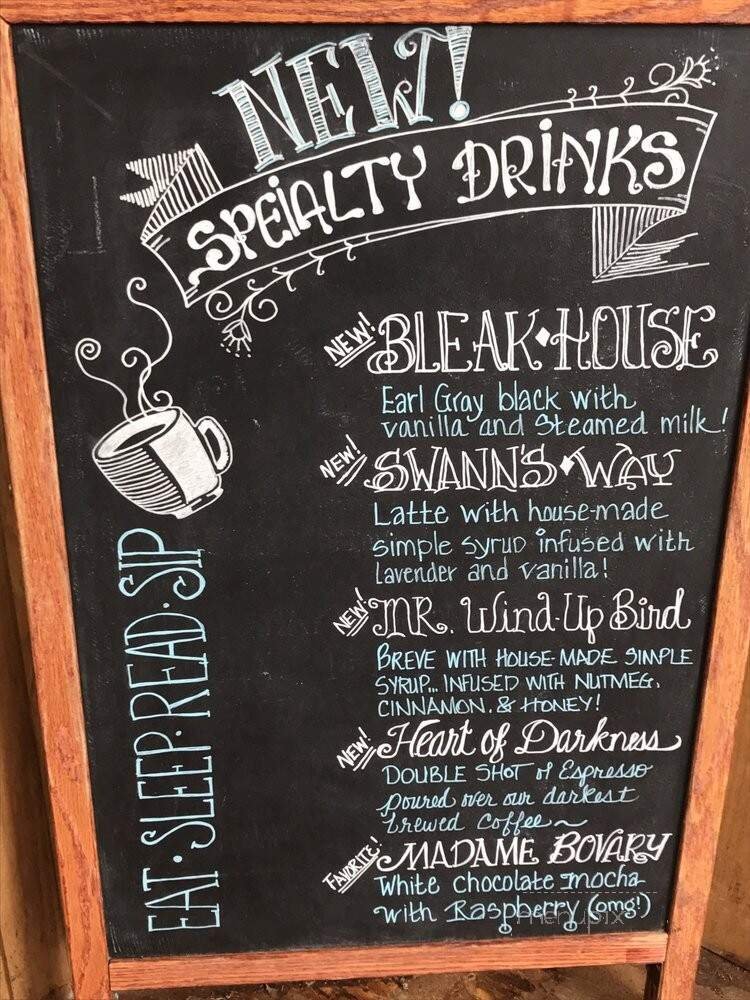 NEW!
SPEIALTY DRINKS
NEW! BLEAK HOUSE
Earl Gray black with
vanilla and Steamed milk!
NEW! SWANN'S WAY
Latte with house-made
simple syrup infused with
lavender and vanilla!
NEW! MR. Wind-Up Bird
BREVE WITH HOUSE-MADE SIMPLE
SYRUP... INFUSED WITH NUTMEG,
CINNAMON, & HONEY!
NEW! Heart of Darkness
DOUBLE SHOT of Espresso
poured over our darkest
brewed coffee~
FAVORITE! MADAME BOVARY
White chocolate mocha
with Raspberry (omg!)
EAT·SLEEP·READ·SIP
menupix